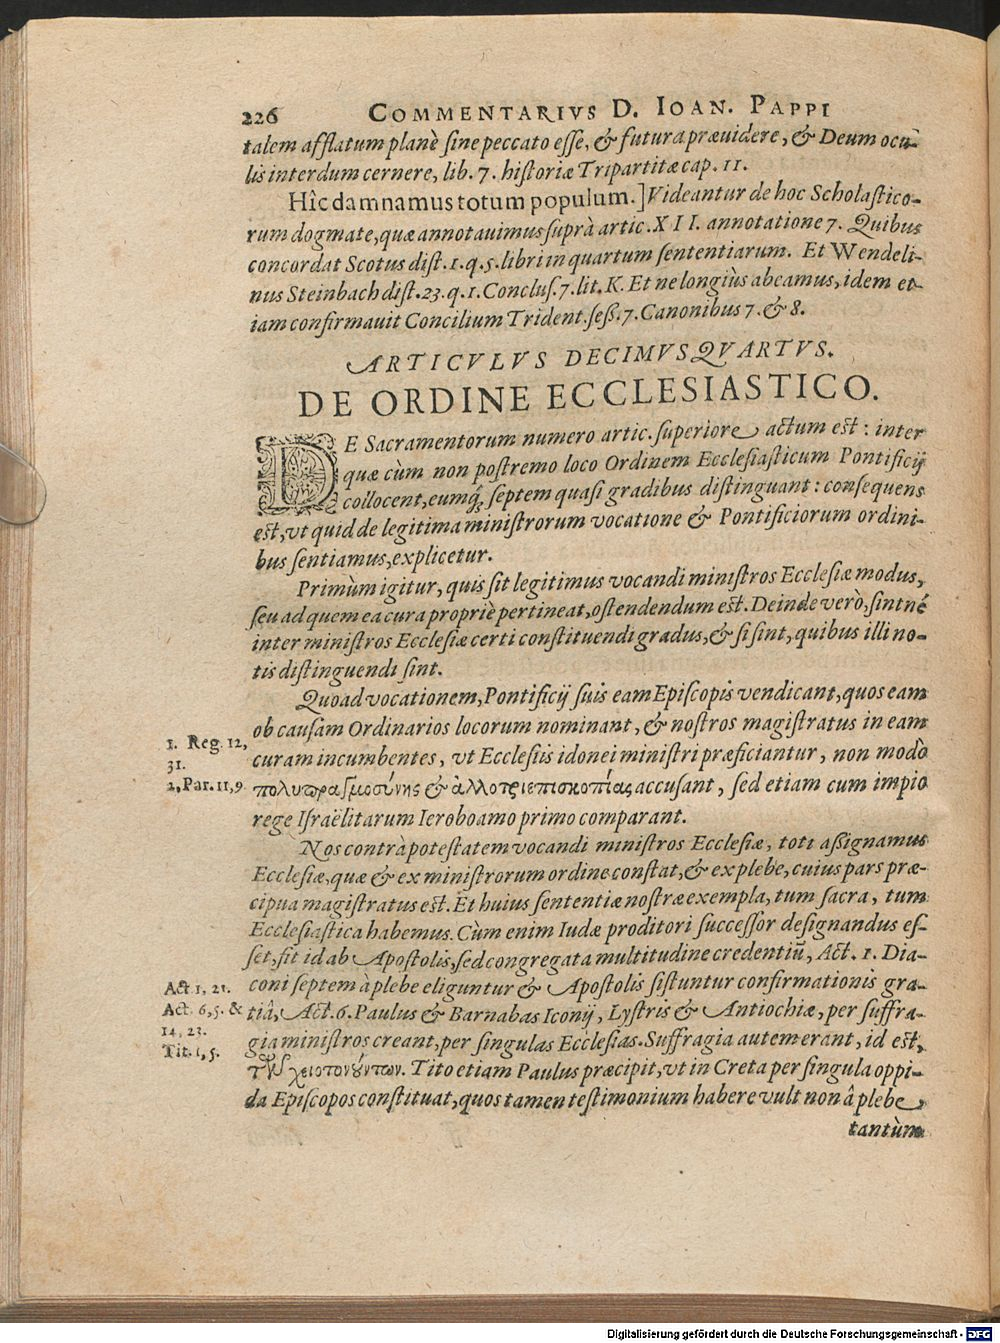 226 COMMENTARIVS D. IOAN. PAPPI
talem afflatum planè sine peccato esse, & futura præuidere, & Deum ocu-
lis interdum cernere, lib. 7. historiæ Tripartitæ cap. 11.
Hîc damnamus totum populum.] Videantur de hoc Scholastico-
rum dogmate, quæ annotauimus suprà artic. XII. annotatione 7. Quibus
concordat Scotus dist. 1. q. 5. libri in quartum sententiarum. Et Wendeli-
nus Steinbach dist. 23. q. 1. Conclus. 7. lit. K. Et ne longiùs abeamus, idem et-
iam confirmauit Concilium Trident. sess. 7. Canonibus 7. & 8.
ARTICVLVS DECIMVSQVARTVS.
DE ORDINE ECCLESIASTICO.
DE Sacramentorum numero artic. superiore actum est: inter
quæ cùm non postremo loco Ordinem Ecclesiasticum Pontificij
collocent, eumq́; septem quasi gradibus distinguant: consequens
est, vt quid de legitima ministrorum vocatione & Pontificiorum ordini-
bus sentiamus, explicetur.
Primùm igitur, quis sit legitimus vocandi ministros Ecclesiæ modus,
seu ad quem ea cura propriè pertineat, ostendendum est. Deinde verò, sintné
inter ministros Ecclesiæ certi constituendi gradus, & si sint, quibus illi no-
tis distinguendi sint.
Quoad vocationem, Pontificij suis eam Episcopis vendicant, quos eam
ob causam Ordinarios locorum nominant, & nostros magistratus in eam
curam incumbentes, vt Ecclesiis idonei ministri præficiantur, non modò
πολυπραγμοσύνης & ἀλλοτριεπισκοπίας accusant, sed etiam cum impio
rege Israëlitarum Ieroboamo primo comparant.
1. Reg. 12,
31.
2, Par. 11, 9
Nos contrà potestatem vocandi ministros Ecclesiæ, toti assignamus
Ecclesiæ, quæ & ex ministrorum ordine constat, & ex plebe, cuius pars præ-
cipua magistratus est. Et huius sententiæ nostræ exempla, tum sacra, tum
Ecclesiastica habemus. Cum enim Iudæ proditori successor designandus es-
set, fit id ab Apostolis, sed congregata multitudine credentiũ, Act. 1. Dia-
coni septem à plebe eliguntur & Apostolis sistuntur confirmationis gra-
tiâ, Act. 6. Paulus & Barnabas Iconij, Lystris & Antiochiæ, per suffra-
gia ministros creant, per singulas Ecclesias. Suffragia autem erant, id est,
τῶν χειροτονούντων. Tito etiam Paulus præcipit, vt in Creta per singula oppi-
da Episcopos constituat, quos tamen testimonium habere vult non â plebe
Act. 1, 21.
Act. 6, 5. &
14, 23.
Tit. 1, 5.
tantùm
Digitalisierung gefördert durch die Deutsche Forschungsgemeinschaft - DFG